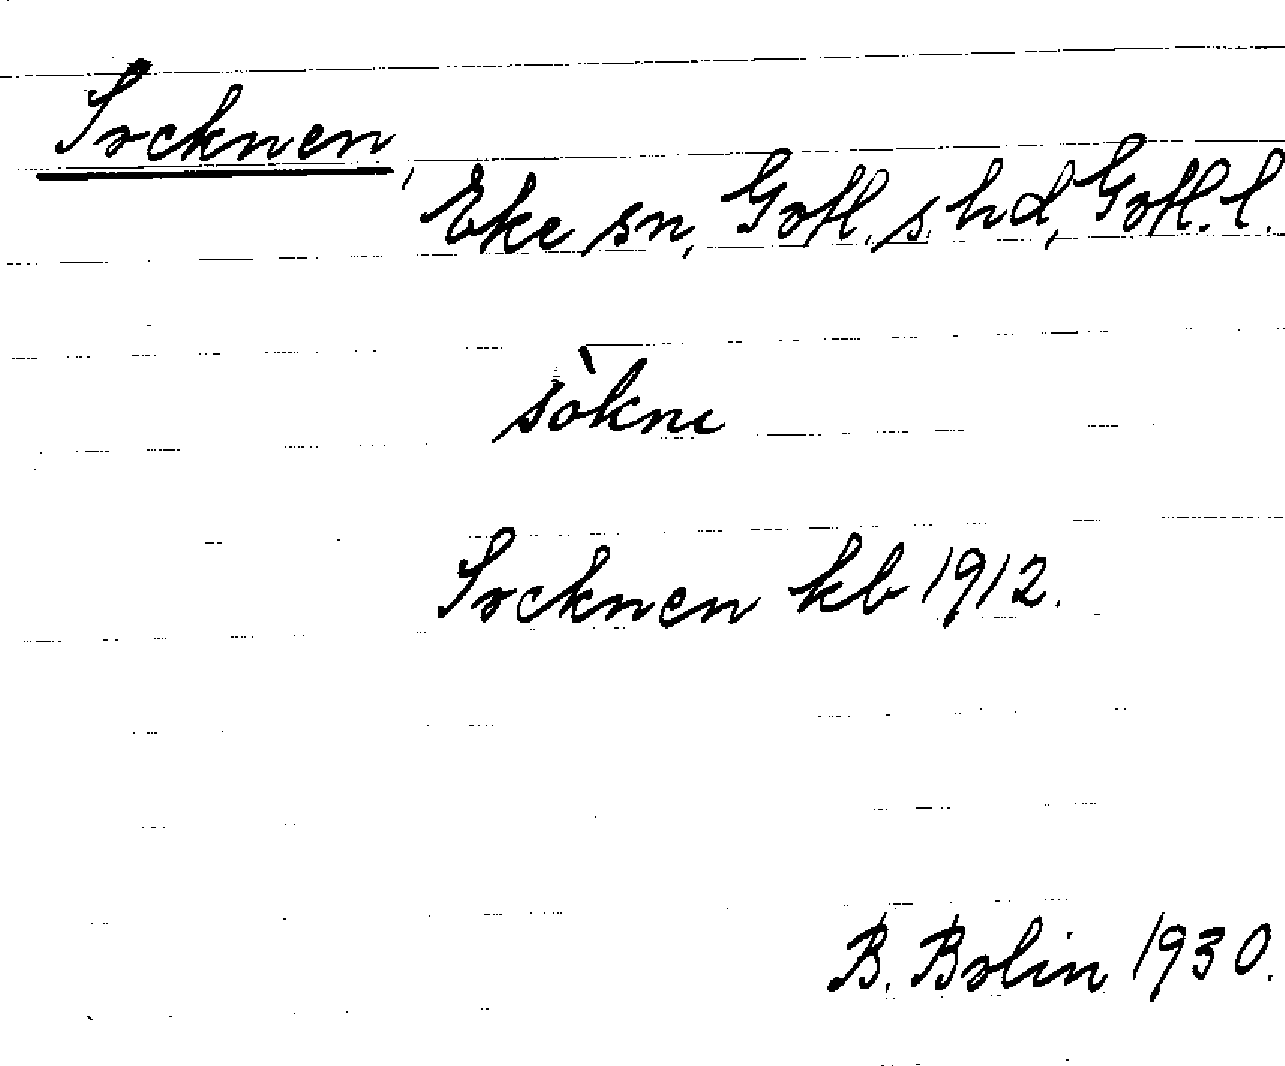 Socknen,
Eke sn, Gotl. s. hd, Gotl. l.
sòkne
Socknen kb 1912.
B. Bolin 1930.